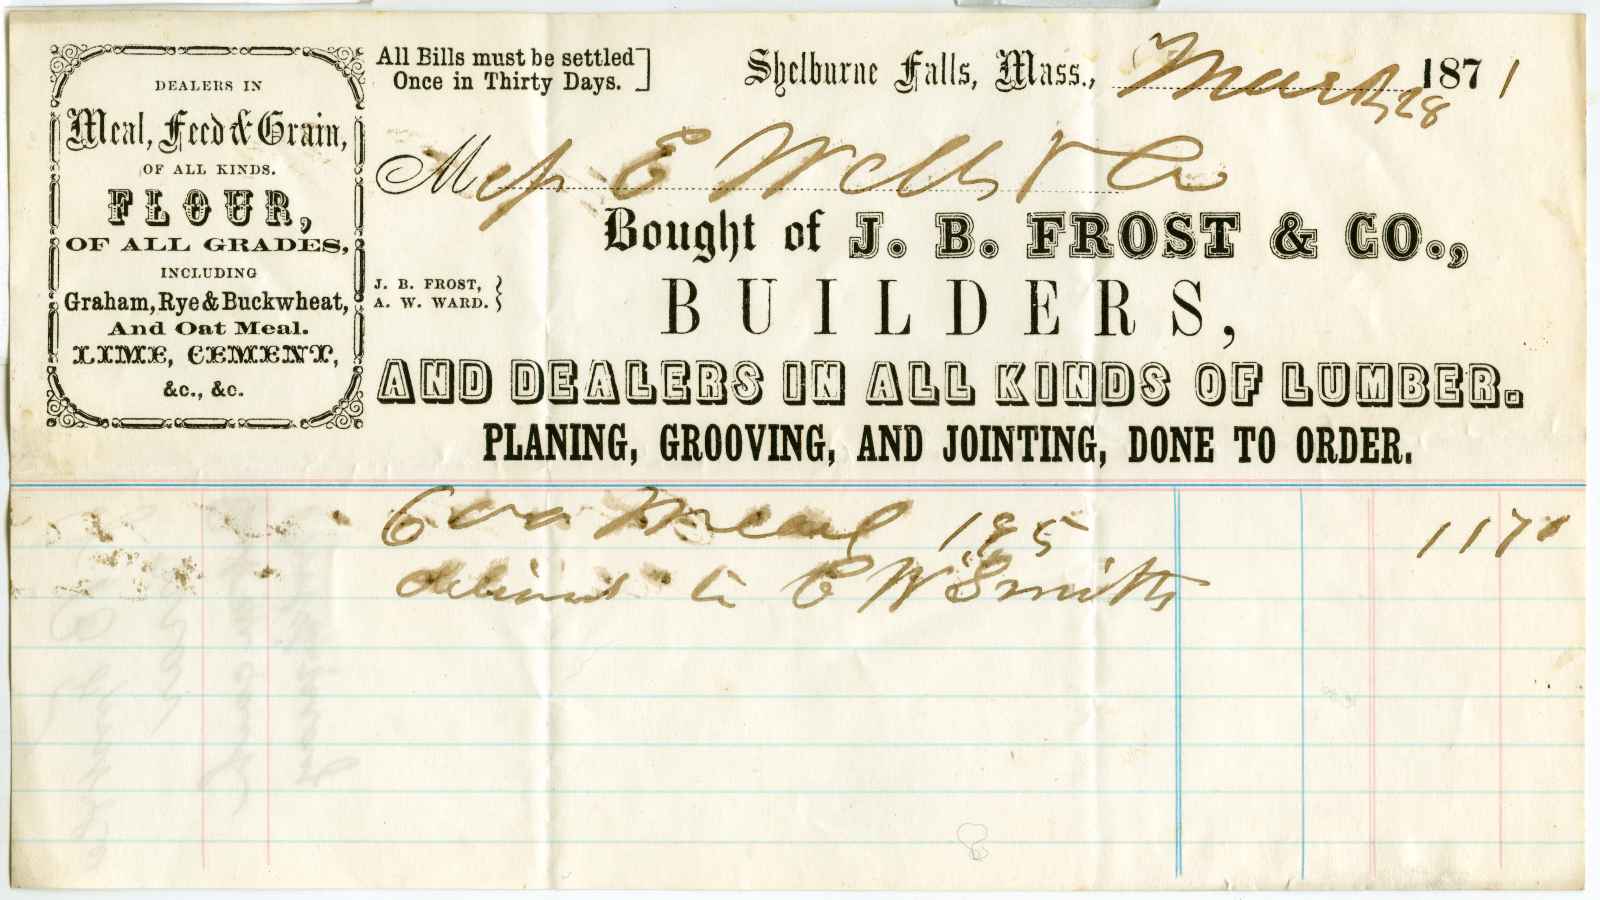 DEALERS IN
Meal, Feed & Grain,
OF ALL KINDS.
FLOUR,
OF ALL GRADES,
INCLUDING
Graham, Rye & Buckwheat,
And Oat Meal.
LIME, CEMENT,
&c., &c.
All Bills must be settled
Once in Thirty Days.
Shelburne Falls, Mass., March 28 1871
Mess E Wells & Co
Bought of J. B. FROST & CO.,
J. B. FROST,
A. W. WARD.
BUILDERS,
AND DEALERS IN ALL KINDS OF LUMBER.
PLANING, GROOVING, AND JOINTING, DONE TO ORDER.
6 Meal 195 1170
delivered to E W Smith